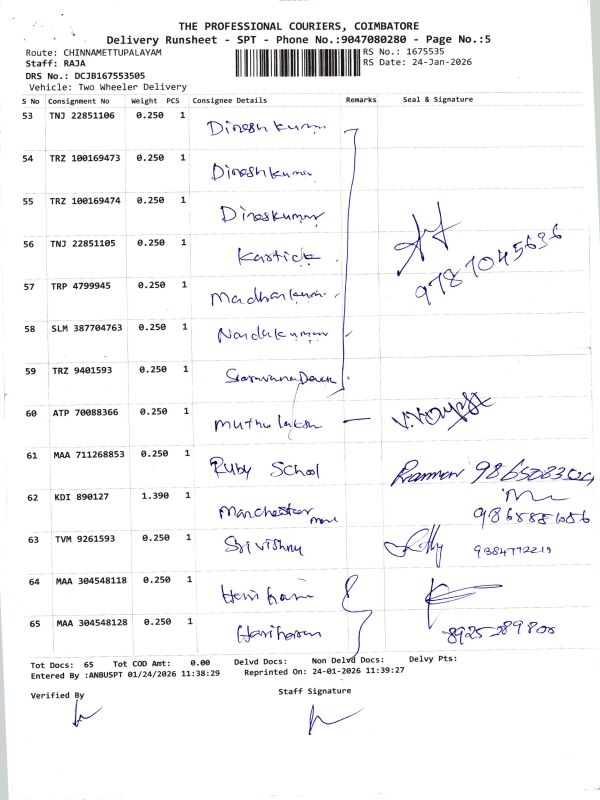 THE PROFESSIONAL COURIERS, COIMBATORE
Delivery Runsheet - SPT - Phone No.:9047080280 - Page No.:5
Route: CHINNAMETTUPALAYAM RS No.: 1675535
Staff: RAJA RS Date: 24-Jan-2026
DRS No.: DCJB167553505
Vehicle: Two Wheeler Delivery
S No Consignment No Weight PCS Consignee Details Remarks Seal & Signature
53 TNJ 22851106 0.250 1 Dinesh Kumar
54 TRZ 100169473 0.250 1 Dinesh Kumar
55 TRZ 100169474 0.250 1 Dineskumar
56 TNJ 22851105 0.250 1 Kartick
9787045636
57 TRP 4799945 0.250 1
58 SLM 387704763 0.250 1 Nandakumar
59 TRZ 9401593 0.250 1
60 ATP 70088366 0.250 1
61 MAA 711268853 0.250 1 Ruby School
62 KDI 890127 1.390 1 Manchester
63 TVM 9261593 0.250 1 Sri vishnu 9384772219
64 MAA 304548118 0.250 1
65 MAA 304548128 0.250 1 Hariharan
Tot Docs: 65 Tot COD Amt: 0.00 Delvd Docs: Non Delvd Docs: Delvy Pts:
Entered By :ANBUSPT 01/24/2026 11:38:29 Reprinted On: 24-01-2026 11:39:27
Verified By Staff Signature